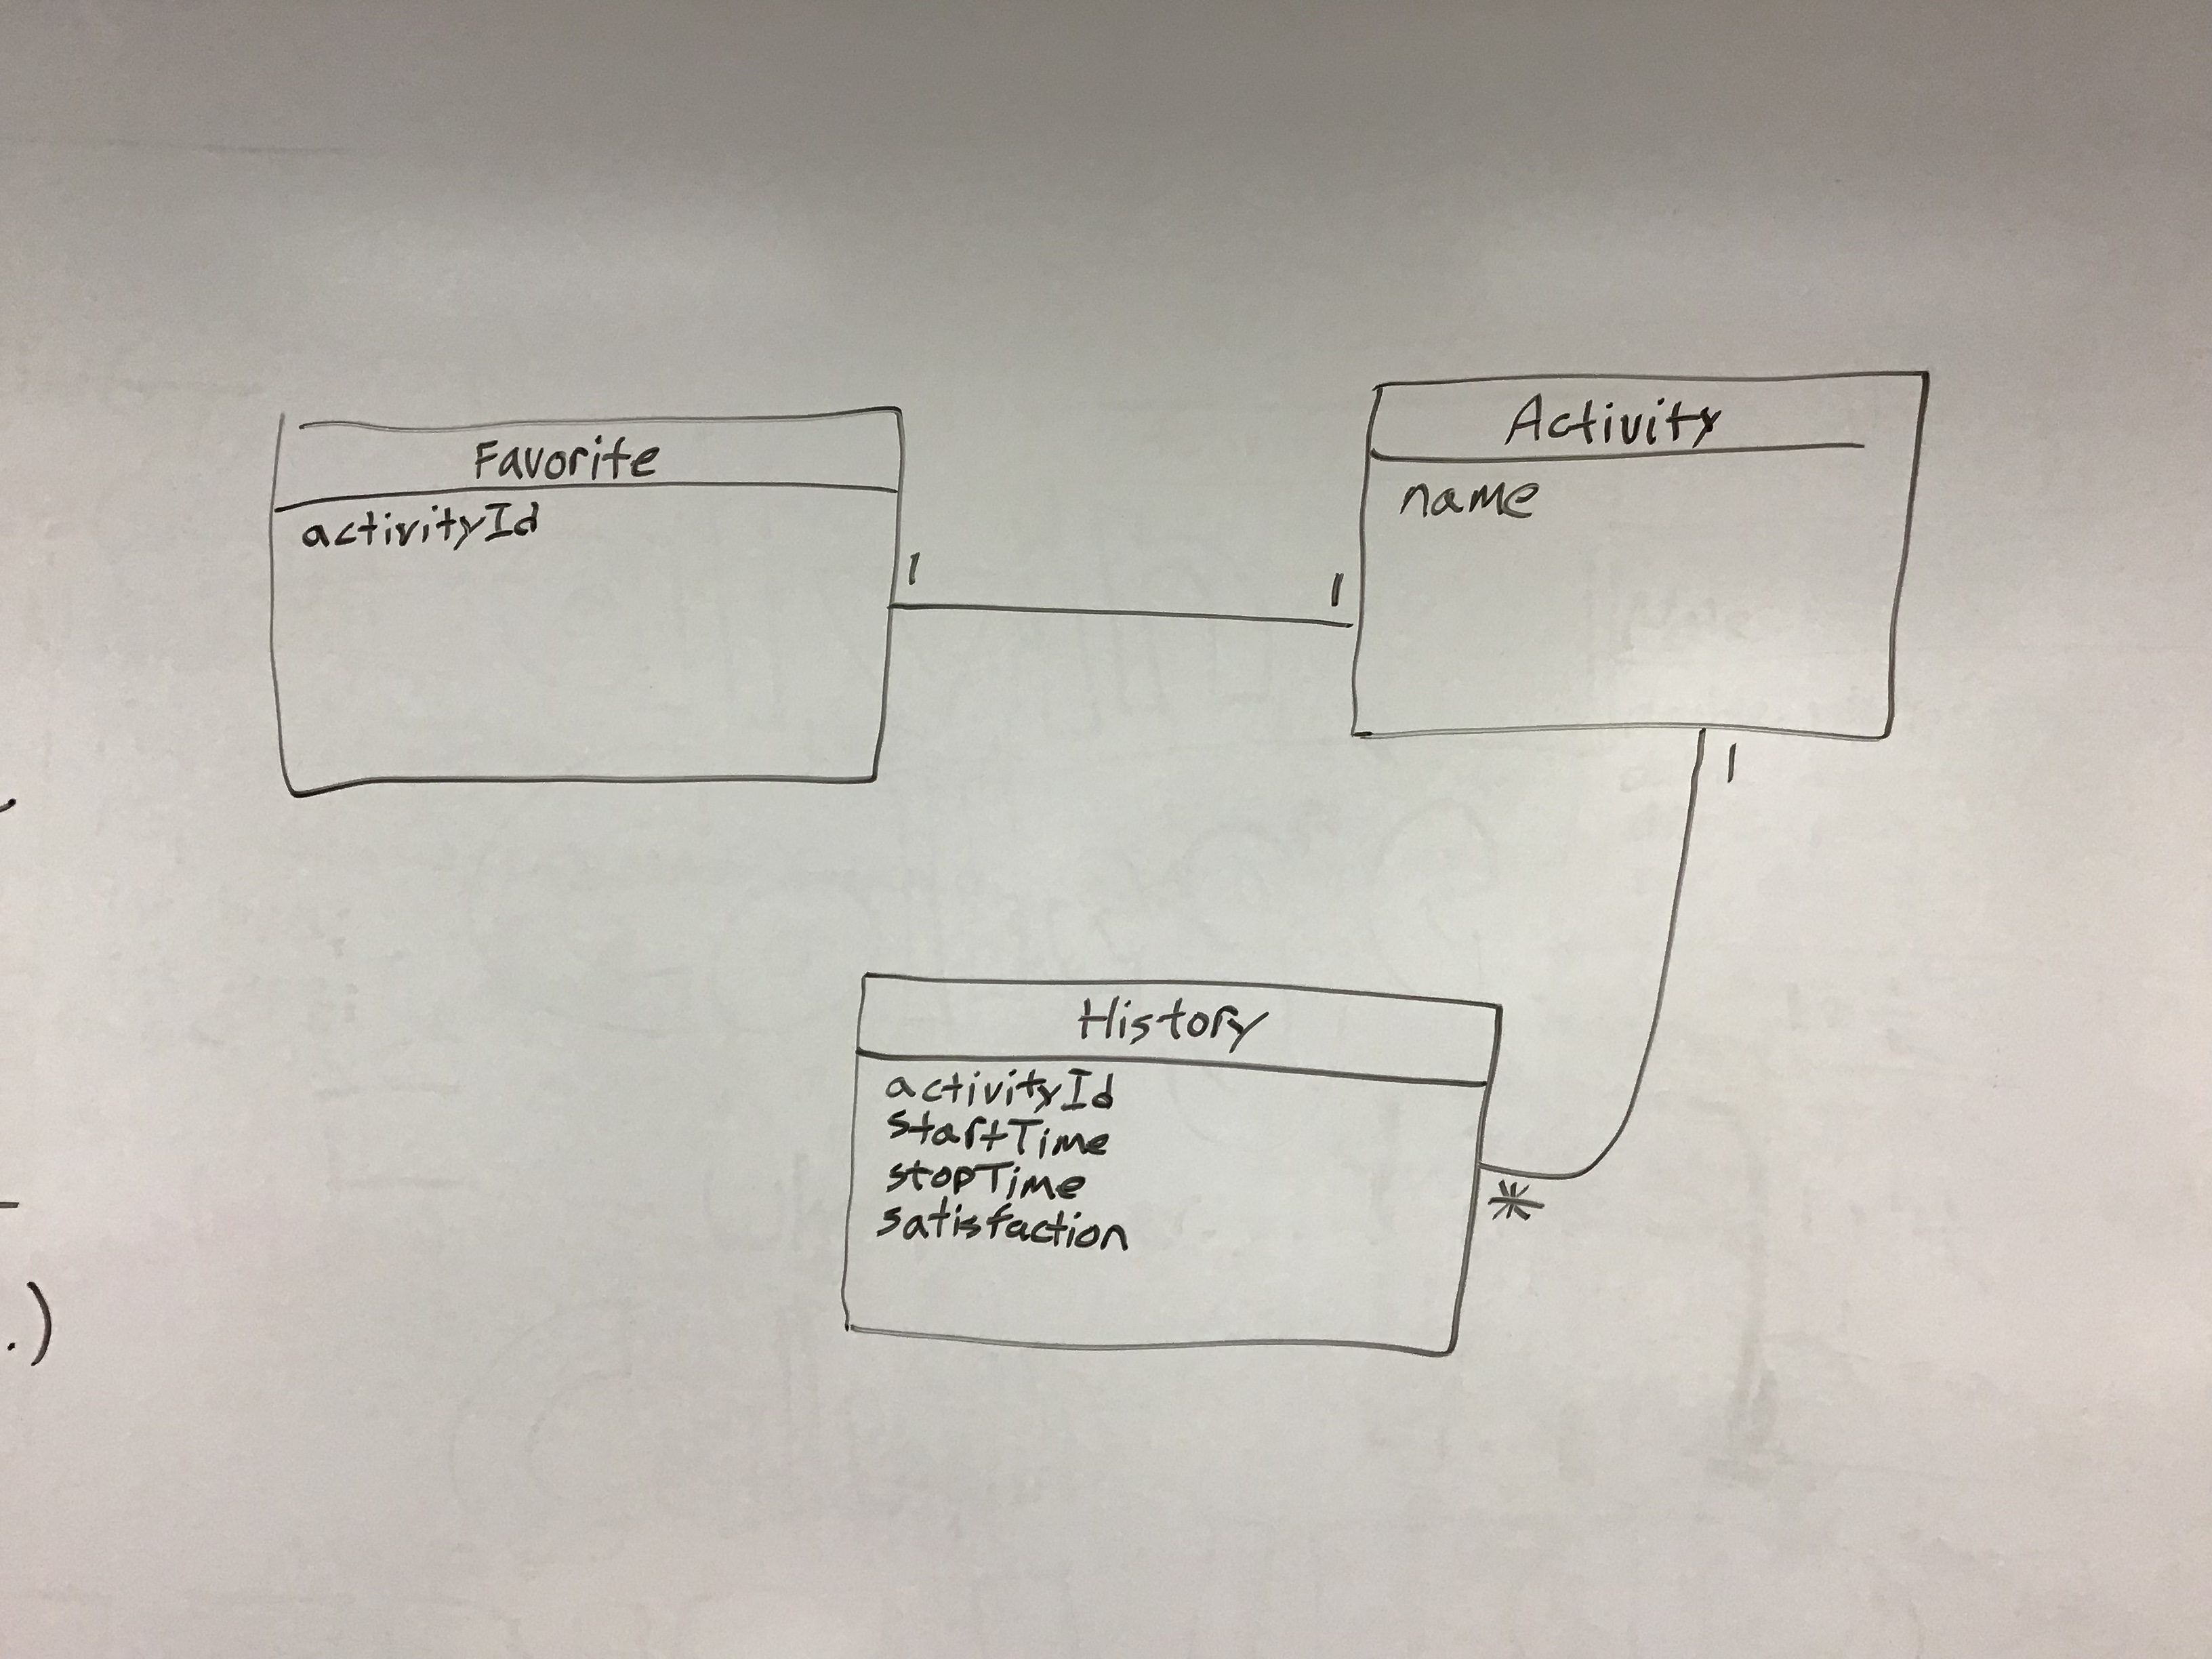 Favorite
activityId
1
1
Activity
name
1
History
activityId
startTime
stopTime
satisfaction
*
.)